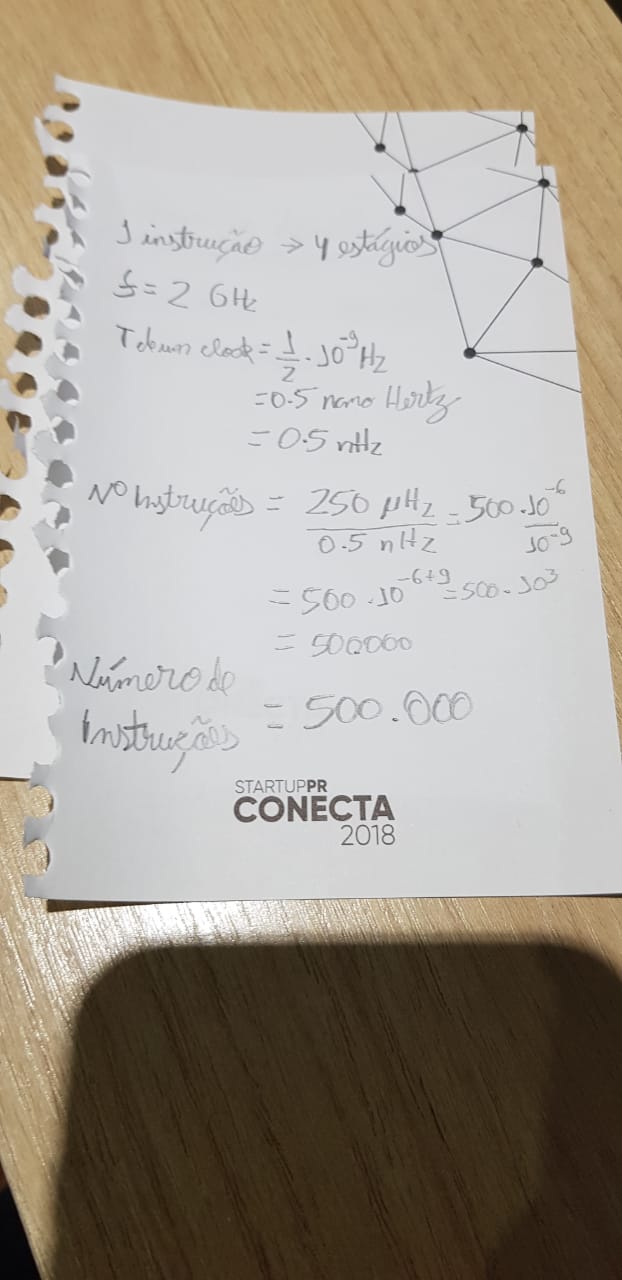 1 instrução → 4 estágios
f = 2 GHz
T de um clock = 1/2 · 10^-9 Hz
= 0.5 nano Hertz
= 0.5 nHz
Nº Instruções = 250 μHz / 0.5 nHz = 500 · 10^-6 / 10^-9
= 500 · 10^-6+9 = 500 · 10^3
= 500000
Número de
Instruções = 500.000
STARTUPPR
CONECTA
2018